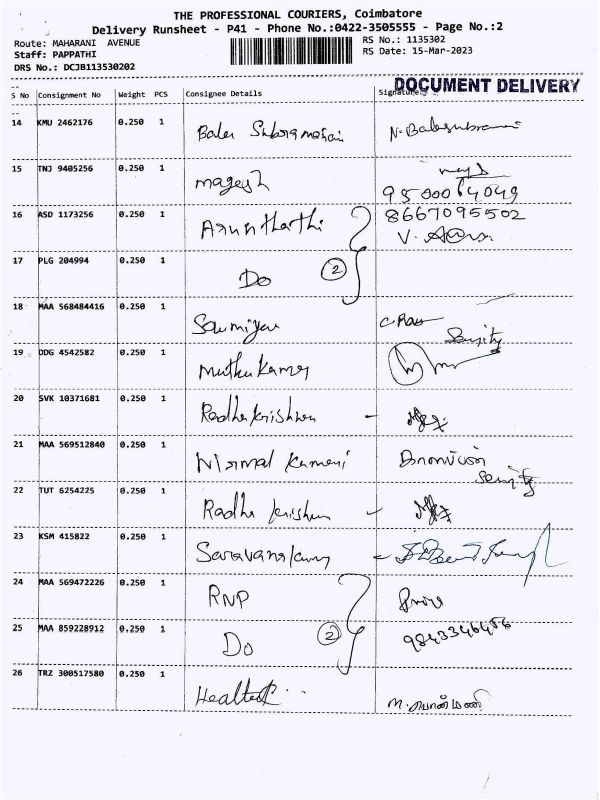 THE PROFESSIONAL COURIERS, Coimbatore
Delivery Runsheet - P41 - Phone No.:0422-3505555 - Page No.:2
Route: MAHARANI AVENUE
RS No.: 1135302
Staff: PAPPATHI
RS Date: 15-Mar-2023
DRS No.: DCJB113530202
DOCUMENT DELIVERY
S No Consignment No Weight PCS Consignee Details Signature
14 KMU 2462176 0.250 1 N. Balasubramani
15 TNJ 9405256 0.250 1 Magesh
9500064049
16 ASD 1173256 0.250 1 8667095502
17 PLG 204994 0.250 1 Do 2
18 MAA 568484416 0.250 1 Sowmiya
19 DDG 4542582 0.250 1 Muthu Kumar
20 SVK 10371681 0.250 1 Radha krishnan -
21 MAA 569512840 0.250 1 Nirmal Kumari
22 TUT 6254225 0.250 1 Radha krishnan -
23 KSM 415822 0.250 1 Saravana kumar -
24 MAA 569472226 0.250 1 RNP
25 MAA 859228912 0.250 1 Do 2 9843346486
26 TRZ 300517580 0.250 1